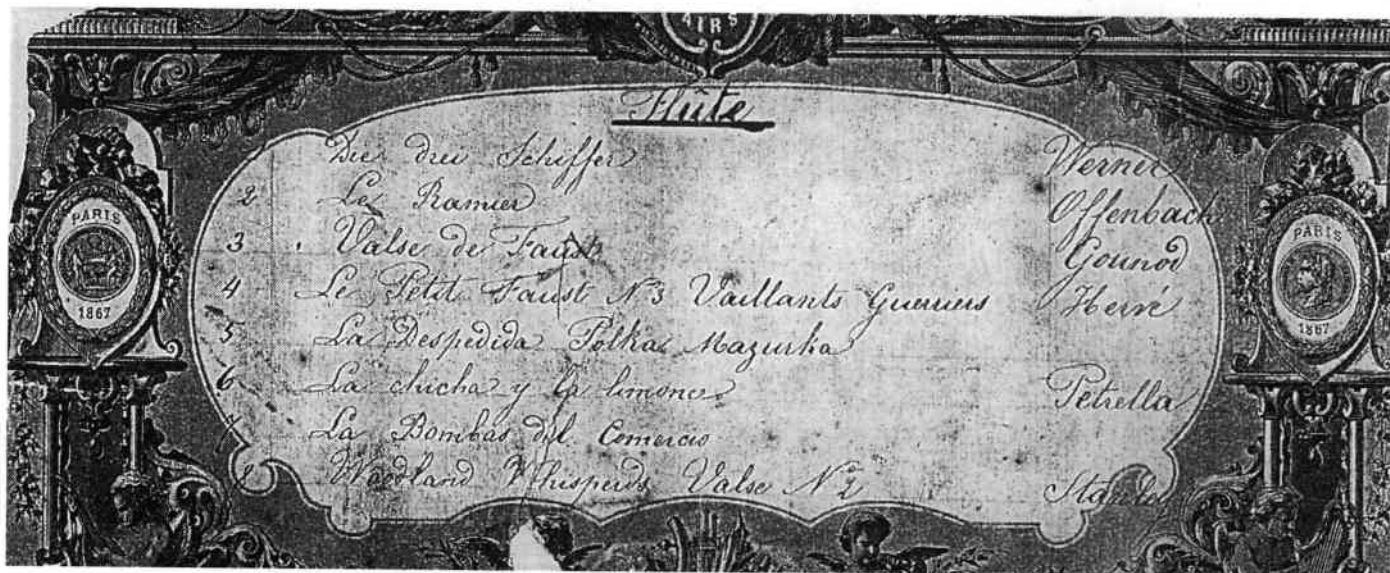 AIRS
Flûte
Die drei Schiffer Werner
2 Le Ramier Offenbach
3 Valse de Faust Gounod
4 Le Petit Faust N°3 Vaillants Guerriers Hervé
5 La Despedida Polka Mazurka
6 La chicha y la limones Petrella
7 La Bombas del Comercio
8 Woodland Whisperds Valse N°2 Stanley
PARIS
1867
PARIS
1867